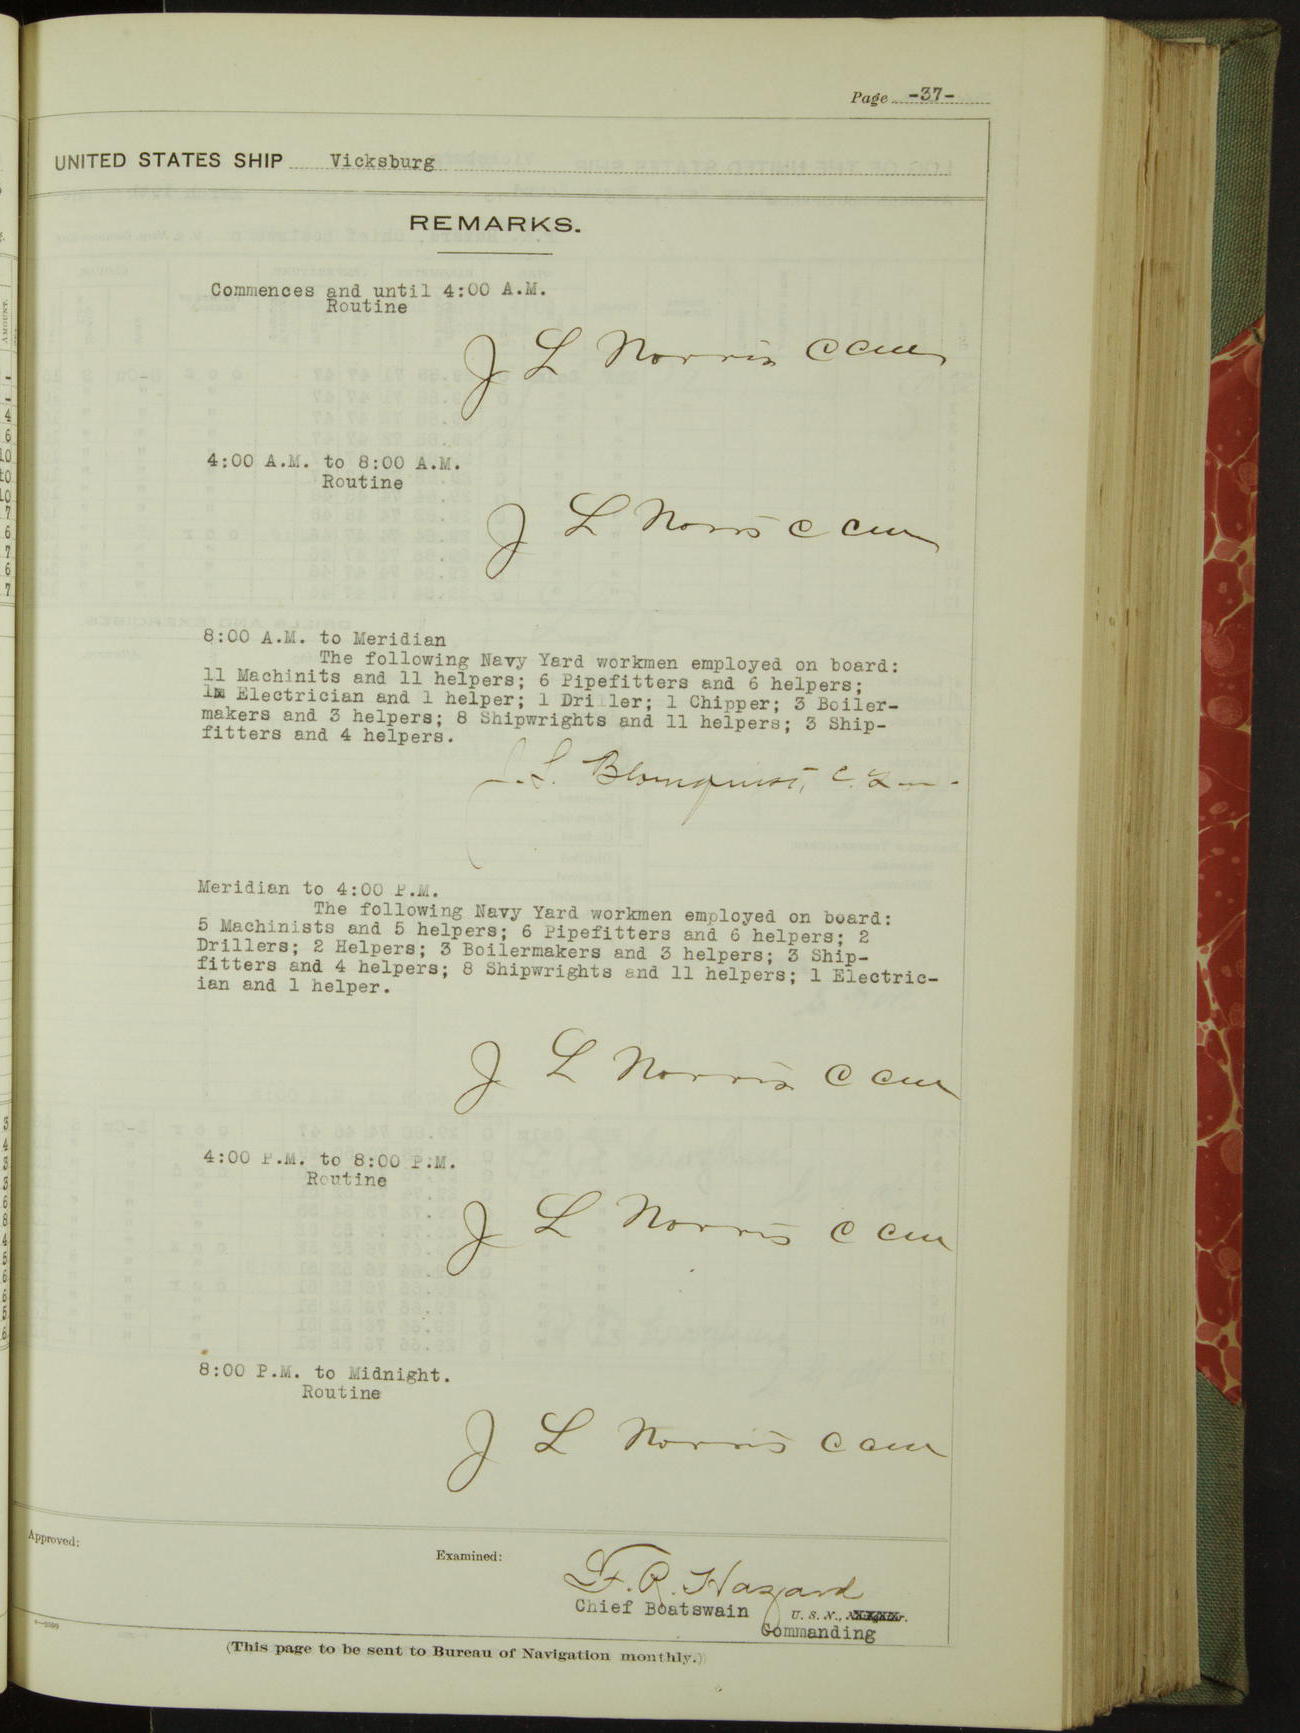 Page -37-
UNITED STATES SHIP Vicksburg
REMARKS.
Commences and until 4:00 A.M.
Routine
J L Norris C CM
4:00 A.M. to 8:00 A.M.
Routine
J L Norris C CM
8:00 A.M. to Meridian
The following Navy Yard workmen employed on board:
11 Machinits and 11 helpers; 6 Pipefitters and 6 helpers;
1 Electrician and 1 helper; 1 Dri ler; 1 Chipper; 3 Boiler-
makers and 3 helpers; 8 Shipwrights and 11 helpers; 3 Ship-
fitters and 4 helpers.
Blomquist,
Meridian to 4:00 P.M.
The following Navy Yard workmen employed on board:
5 Machinists and 5 helpers; 6 Pipefitters and 6 helpers; 2
Drillers; 2 Helpers; 3 Boilermakers and 3 helpers; 3 Ship-
fitters and 4 helpers; 8 Shipwrights and 11 helpers; 1 Electric-
ian and 1 helper.
J L Norris C CM
4:00 P.M. to 8:00 P.M.
Routine
J L Norris C CM
8:00 P.M. to Midnight.
Routine
J L Norris C CM
Approved:
Examined:
F. R. Hazard
Chief Boatswain U. S. N.,
Commanding
(This page to be sent to Bureau of Navigation monthly.)